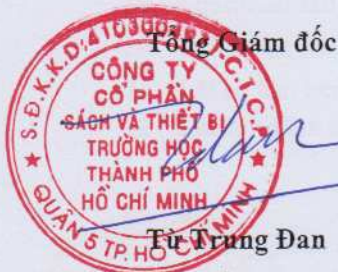 Tổng Giám đốc
CÔNG TY
CỔ PHẦN
SÁCH VÀ THIẾT BỊ
TRƯỜNG HỌC
THÀNH PHỐ
HỒ CHÍ MINH
QUẬN 5 TP. HỒ CHÍ MINH
Từ Trung Đan